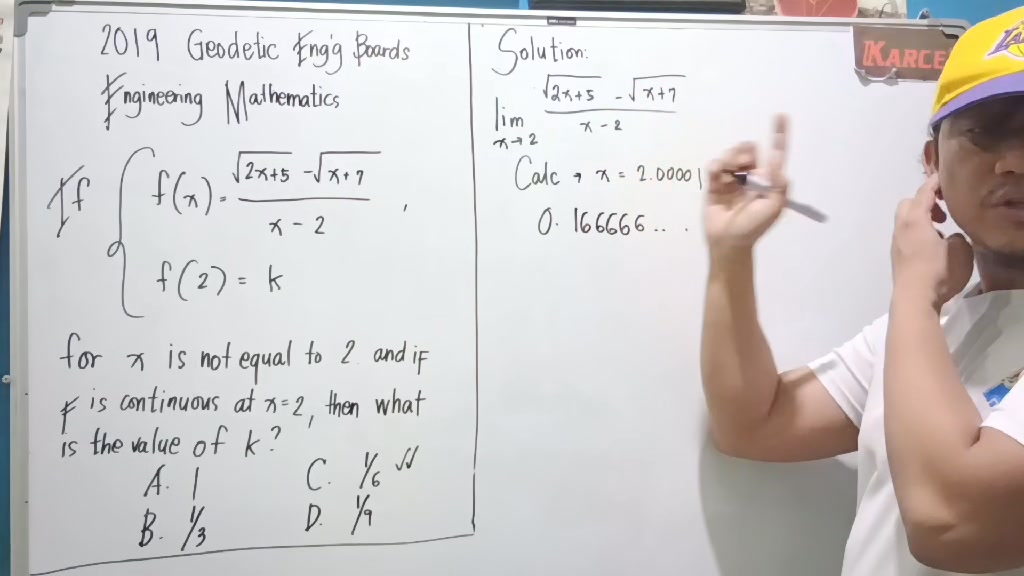 2019 Geodetic Eng'g Boards
Engineering Mathematics
If
f(x) = √2x+5 - √x+7
x - 2
,
f(2) = k
for x is not equal to 2 and if
f is continuous at x=2, then what
is the value of k?
A. 1
C. 1/6 ✓✓
B. 1/3
D. 1/9
Solution:
lim
x→2
√2x+5 - √x+7
x - 2
Calc → x = 2.00001
0.166666...
KARCE